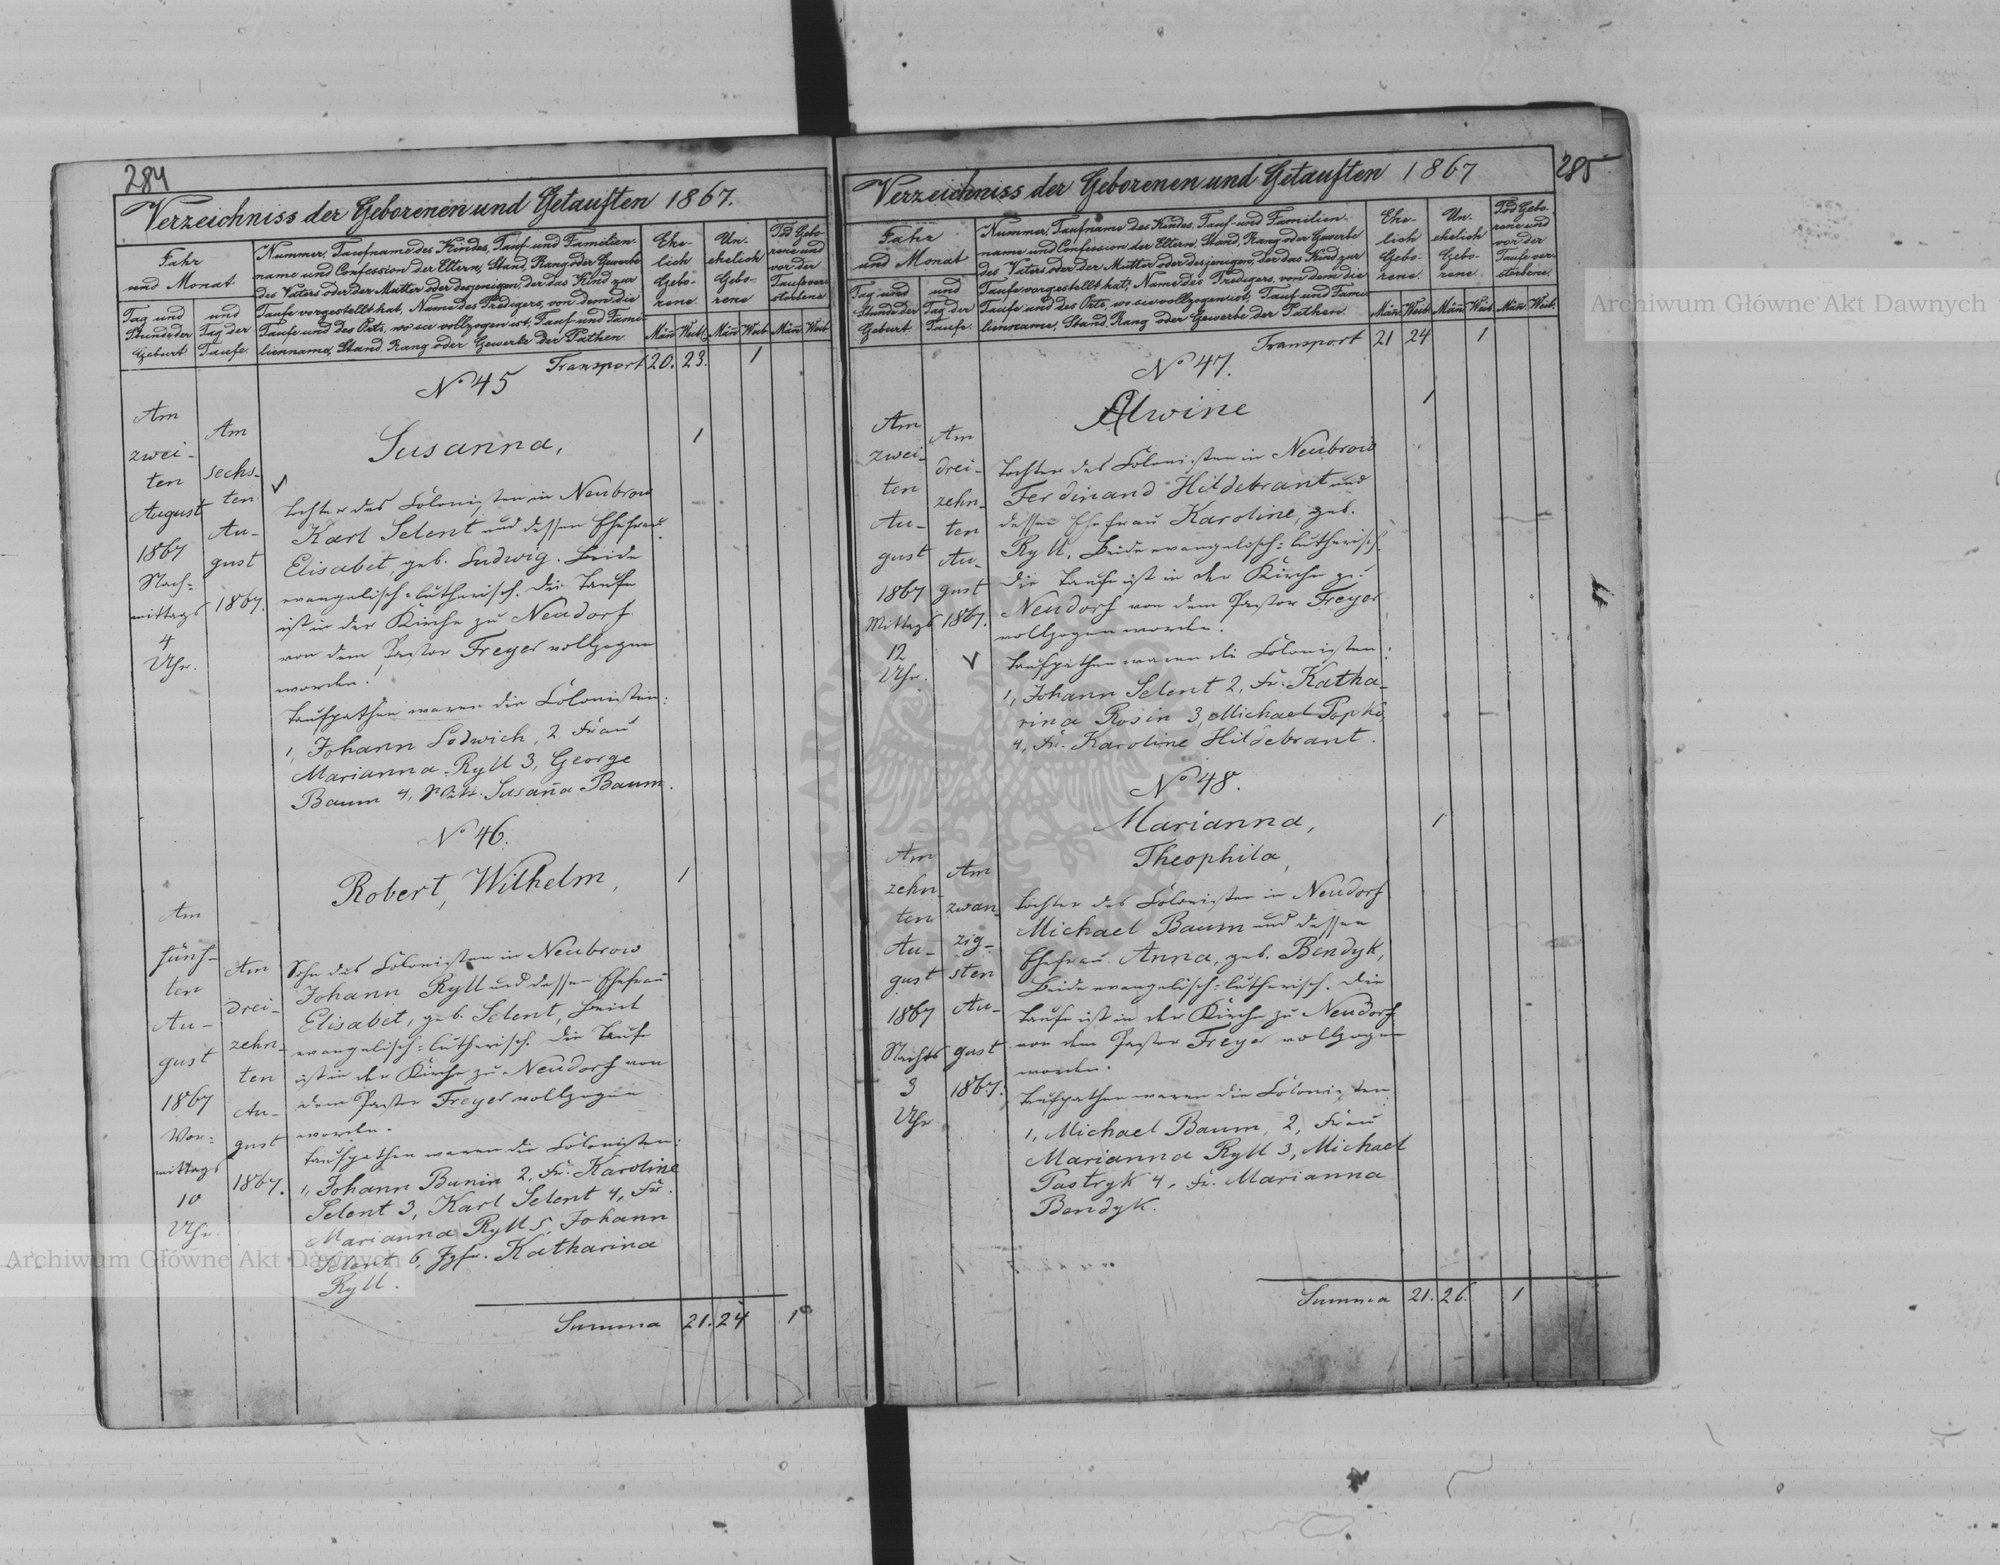 284
Verzeichniss der Geborenen und Getauften 1867.
Jahr
und Monat
Tag und
Stunde der
Geburt
und
Tag der
Taufe.
Nummer, Taufname des Kindes, Tauf- und Familien-
name und Confession der Eltern, Stand, Rang oder Gewerbe
des Vaters oder der Mutter oder desjenigen, der das Kind zur
Taufe vorgestellt hat, Name des Predigers, von dem die
Taufe und des Orts, wo sie vollzogen ist, Tauf und Fami-
lienname, Stand, Rang oder Gewerbe der Pathen.
Ehe-
lich
Gebo-
rene
Un-
ehelich
Gebo-
rene
Tod Gebo-
rene und
vor der
Taufe ver-
storbene
Män. Weib. Män. Weib. Män. Weib.
Transport 20. 23. 1
No 45
Am
zwei-
ten
August
1867
Nach-
mittags
4
Uhr.
Am
sechs-
ten
Au-
gust
1867.
Susanna, 1
Tochter des Colonisten in Neubrow
Karl Selent und dessen Ehefrau
Elisabet, geb. Ludwig. Beide
evangelisch-lutherisch. Die Taufe
ist in der Kirche zu Neudorf
von dem Pastor Freyer vollzogen
worden.
Taufpathen waren die Colonisten:
1, Johann Lodwich, 2, Frau
Marianna Ryll 3, George
Baum 4, Susana Baum.
No 46.
Am
fünf-
ten
Au-
gust
1867
Vor-
mittags
10
Uhr.
Am
drei-
zehn-
ten
Au-
gust
1867.
Robert, Wilhelm, 1
Sohn des Colonisten in Neubrow
Johann Ryll und dessen Ehefrau
Elisabet, geb. Selent, Beide
evangelisch-lutherisch. Die Taufe
ist in der Kirche zu Neudorf von
dem Pastor Freyer vollzogen
worden.
Taufpathen waren die Colonisten:
1, Johann Bunin 2, Fr. Karoline
Selent 3, Karl Selent 4, Fr.
Marianna Ryll 5, Johann
Selent 6, Jgfr. Katharina
Ryll.
Summa 21. 24 1
285
Verzeichniss der Geborenen und Getauften 1867
Jahr
und Monat
Tag und
Stunde der
Geburt
und
Tag der
Taufe.
Nummer, Taufname des Kindes, Tauf- und Familien-
name und Confession der Eltern, Stand, Rang oder Gewerbe
des Vaters oder der Mutter oder desjenigen, der das Kind zur
Taufe vorgestellt hat, Name des Predigers, von dem die
Taufe und des Orts, wo sie vollzogen ist, Tauf und Fami-
lienname, Stand, Rang oder Gewerbe der Pathen.
Ehe-
lich
Gebo-
rene
Un-
ehelich
Gebo-
rene
Tod Gebo-
rene und
vor der
Taufe ver-
storbene
Män. Weib. Män. Weib. Män. Weib.
Transport 21 24 1
No 47.
Am
zwei-
ten
Au-
gust
1867
Mittags
12
Uhr.
Am
drei-
zehn-
ten
Au-
gust
1867.
Alwine 1
Tochter des Colonisten in Neubrow
Ferdinand Hildebrant und
dessen Ehefrau Karoline, geb.
Ryll, Beide evangelisch-lutherisch.
Die Taufe ist in der Kirche zu
Neudorf von dem Pastor Freyer
vollzogen worden.
Taufpathen waren die Colonisten:
1, Johann Selent 2, Fr. Katha-
rina Rosin 3, Michael Popko
4, Fr. Karoline Hildebrant.
No 48.
Am
zehn-
ten
Au-
gust
1867
Nachts
3
Uhr
Am
zwan-
zig-
sten
Au-
gust
1867.
Marianna, 1
Theophila,
Tochter des Colonisten in Neudorf
Michael Baum und dessen
Ehefrau Anna, geb. Bendyk,
Beide evangelisch-lutherisch. Die
Taufe ist in der Kirche zu Neudorf
von dem Pastor Freyer vollzogen
worden.
Taufpathen waren die Colonisten:
1, Michael Baum, 2, Frau
Marianna Ryll 3, Michael
Pastryk 4, Fr. Marianna
Bendyk.
Summa 21. 26. 1
Archiwum Główne Akt Dawnych
Archiwum Główne Akt Dawnych